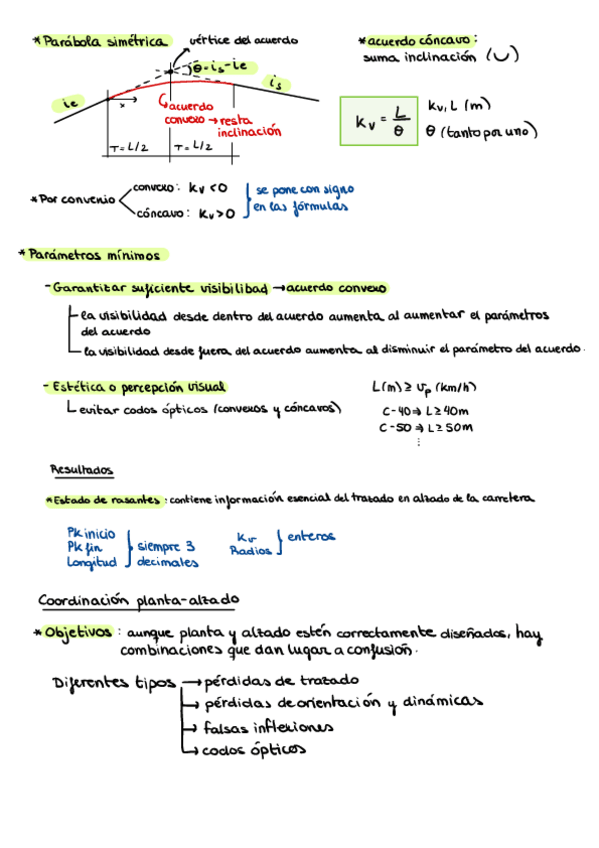 * Parábola simétrica
vértice del acuerdo
θ = is - ie
is
ie
x
acuerdo
convexo → resta
inclinación
T = L/2
T = L/2
* acuerdo cóncavo :
suma inclinación (∪)
Kv = L/θ
Kv, L (m)
θ (tanto por uno)
* Por convenio
convexo : Kv < 0
cóncavo : Kv > 0
se pone con signo
en las fórmulas
* Parámetros mínimos
- Garantizar suficiente visibilidad → acuerdo convexo
la visibilidad desde dentro del acuerdo aumenta al aumentar el parámetros
del acuerdo
la visibilidad desde fuera del acuerdo aumenta al disminuir el parámetro del acuerdo.
- Estética o percepción visual
evitar codos ópticos (convexos y cóncavos)
L(m) ≥ vp (km/h)
C-40 ⇒ L ≥ 40m
C-50 ⇒ L ≥ 50m
⋮
Resultados
* Estado de rasantes : contiene información esencial del trazado en alzado de la carretera
Pk inicio
Pk fin
Longitud
siempre 3
decimales
Kv
Radios
enteros
Coordinación planta-alzado
* Objetivos : aunque planta y alzado estén correctamente diseñados, hay
combinaciones que dan lugar a confusión.
Diferentes tipos → pérdidas de trazado
→ pérdidas de orientación y dinámicas
→ falsas inflexiones
→ codos ópticos